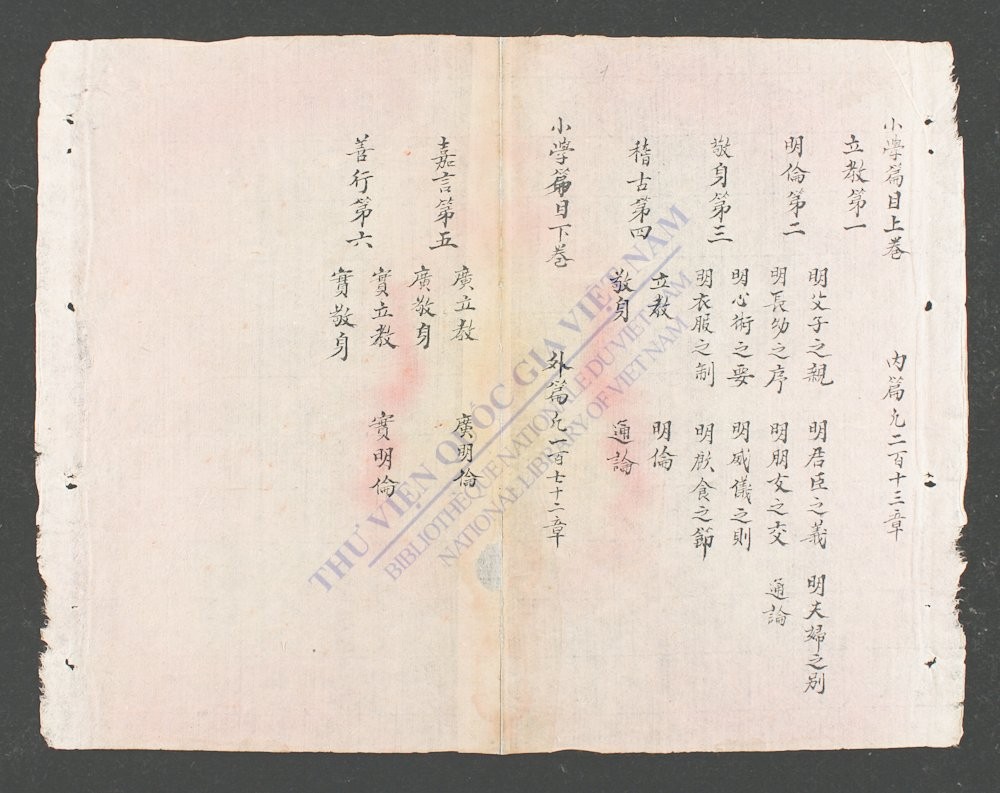 小學篇目上巻　内篇凢二百十三章
立教第一
明倫第二
明父子之親　明君臣之義　明夫婦之别
明長幼之序　明朋友之交　通論
敬身第三
明心術之要　明威儀之則
明衣服之制　明飲食之節
稽古第四
立教　明倫
敬身　通論
小學篇目下巻　外篇凢一百七十二章
嘉言第五
廣立教　廣明倫
廣敬身
善行第六
實立教　實明倫
實敬身
THƯ VIỆN QUỐC GIA VIỆT NAM
BIBLIOTHÈQUE NATIONALE DU VIETNAM
NATIONAL LIBRARY OF VIETNAM